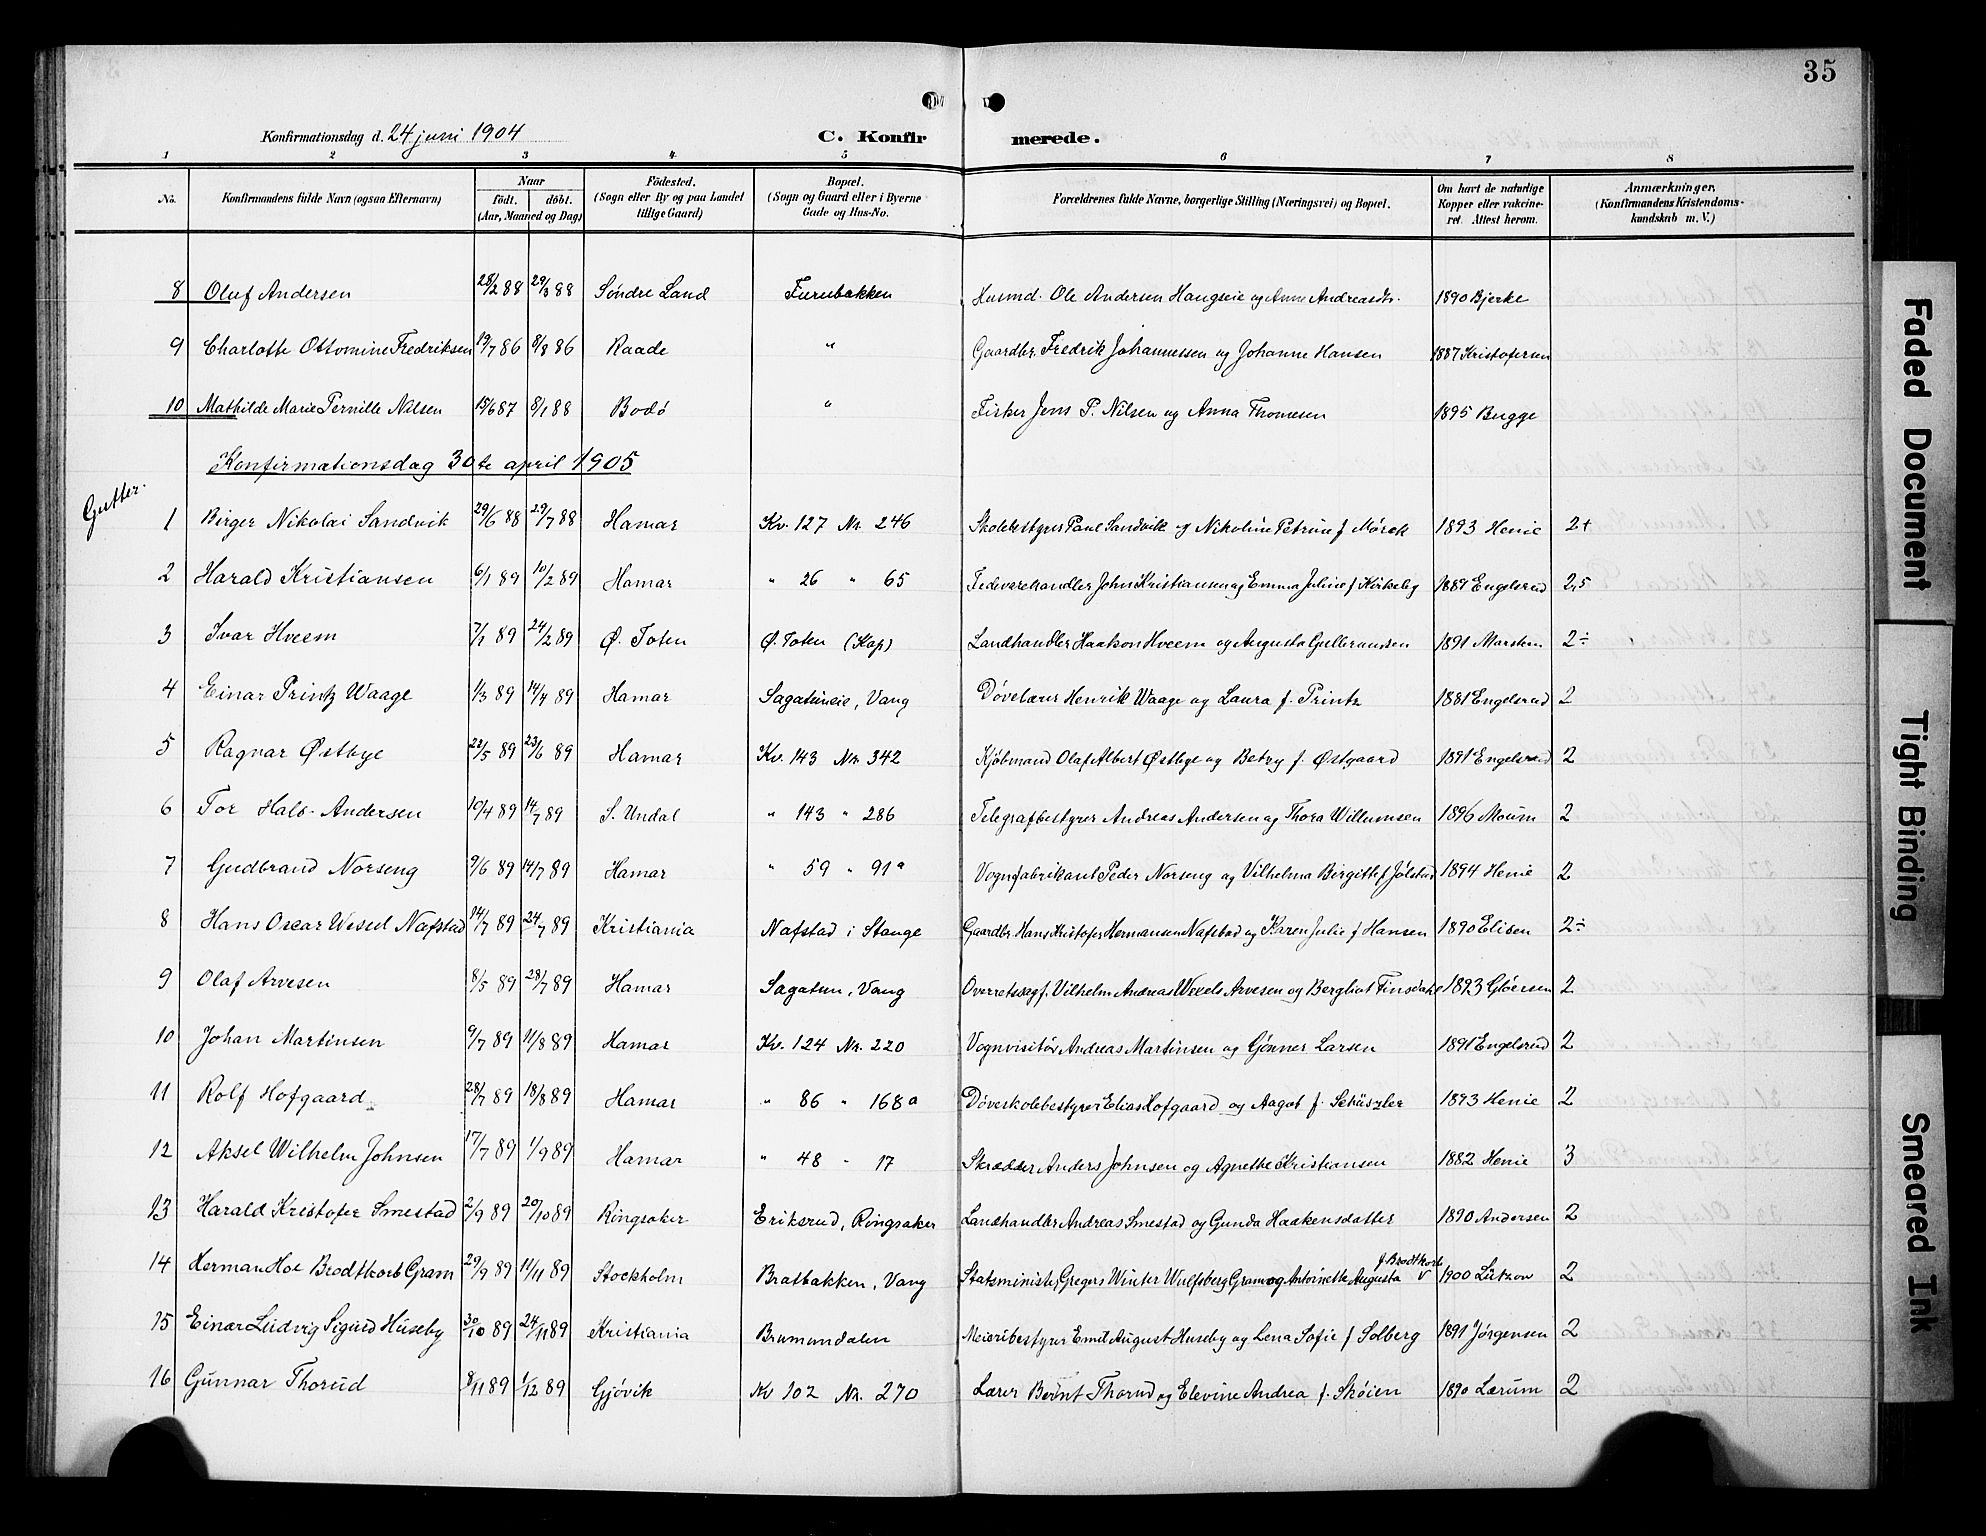 35
Konfirmationsdag d. 24 juni 1904 C. Konfirmerede.
1 2 3 4 5 6 7 8
No. Konfirmandens fulde Navn (ogsaa Efternavn) Naar født. døbt. (Aar, Maaned og Dag) Fødested. (Sogn eller By og paa Landet tillige Gaard) Bopæl. (Sogn og Gaard eller i Byerne Gade og Hus-No. Forældrenes fulde Navne, borgerlige Stilling (Næringsvei) og Bopæl. Om havt de naturlige Kopper eller vakcineret. Attest herom. Anmærkninger, (Konfirmandens Kristendomskundskab m. V.)
8 Oluf Andersen 28/2 88 29/3 88 Søndre Land Furubakken Husmd. Ole Andersen Haugseie og Anne Andreasdtr. 1890 Bjerke
9 Charlotte Ottomine Fredriksen 19/7 86 8/8 86 Raade " Gaardbr. Fredrik Johannessen og Johanne Hansen 1887 Kristofersen
10 Mathilde Marie Pernille Nilsen 15/6 87 8/1 88 Bodø " Fisker Jens P. Nilsen og Anna Thomesen 1895 Bugge
Konfirmationsdag 30te april 1905
Gutter.
1 Birger Nikolai Sandvik 29/6 88 29/7 88 Hamar Kv. 127 Nr. 246 Skolebestyrer Paul Sandvik og Nikoline Petrine f. Mørck 1893 Henie 2+
2 Harald Kristiansen 6/1 89 10/2 89 Hamar " 26 " 65 Fedevarehandler John Kristiansen og Emma Juline f. Kirkeby 1889 Engelsrud 2,5
3 Ivar Hveem 7/1 89 24/2 89 Ø. Toten Ø. Toten (Kap) Landhandler Haakon Hveem og Augusta Gulleraussen 1891 Marstein 2÷
4 Einar Printz Waage 1/3 89 14/4 89 Hamar Sagatuneie, Vang Døvelærer Henrik Waage og Laura f. Printz 1881 Engelsrud 2
5 Ragnar Østbye 22/5 89 23/6 89 Hamar Kv. 143 Nr. 342 Kjøbmand Olaf Albert Østbye og Betzy f. Østgaard 1891 Engelsrud 2
6 Tor Hals-Andersen 10/4 89 14/7 89 S. Undal " 143 " 286 Telegrafbestyrer Andreas Andersen og Thora Willumsen 1896 Moum 2
7 Gudbrand Norseng 9/6 89 14/7 89 Hamar " 59 " 91a Vognfabrikant Peder Norseng og Vilhelma Birgitte f Jølstad 1894 Henie 2
8 Hans Oscar Wessel Nafstad 14/7 89 24/7 89 Kristiania Nafstad i Stange Gaardbr. Hans Kristofer Hermansen Nafstad og Karen Julie f Hansen 1890 Elisen 2÷
9 Olaf Arvesen 8/5 89 28/7 89 Hamar Sagatun, Vang Overretssagf. Vilhelm Andreas Wexels Arvesen og Bergliot Finsdahl 1893 Gløersen 2
10 Johan Martinsen 9/7 89 11/8 89 Hamar Kv. 124 Nr. 220 Vognvisitør Andreas Martinsen og Gønner Larsen 1891 Engelsrud 2
11 Rolf Hofgaard 28/7 89 18/8 89 Hamar " 86 " 168a Døveskolebestyrer Elias Hofgaard og Aagot f. Schüszler 1893 Henie 2
12 Aksel Wilhelm Johnsen 17/7 89 1/9 89 Hamar " 48 " 17 Skrædder Anders Johnsen og Agnethe Kristiansen 1882 Henie 3
13 Harald Kristofer Smestad 2/9 89 20/10 89 Ringsaker Eriksrud, Ringsaker Landhandler Andreas Smestad og Gunda Haakensdatter 1890 Andersen 2
14 Herman Hoe Brodtkorb Gram 29/9 89 11/11 89 Stockholm Bratbakken, Vang Statsminister Gregers Winter Wulfsberg Gram og Antoinette Augusta f Brodtkorb 1900 Lützow 2
15 Einar Ludvig Sigurd Huseby 30/10 89 24/11 89 Kristiania Brumunddalen Meieribestyrer Emil August Huseby og Lena Sofie f Solberg 1891 Jørgensen 2
16 Gunnar Thorud 8/11 89 1/12 89 Gjøvik Kv 102 Nr. 270 Lærer Bernt Thorud og Elevine Andrea f. Skøien 1890 Lærum 2
Faded Document
Tight Binding
Smeared Ink